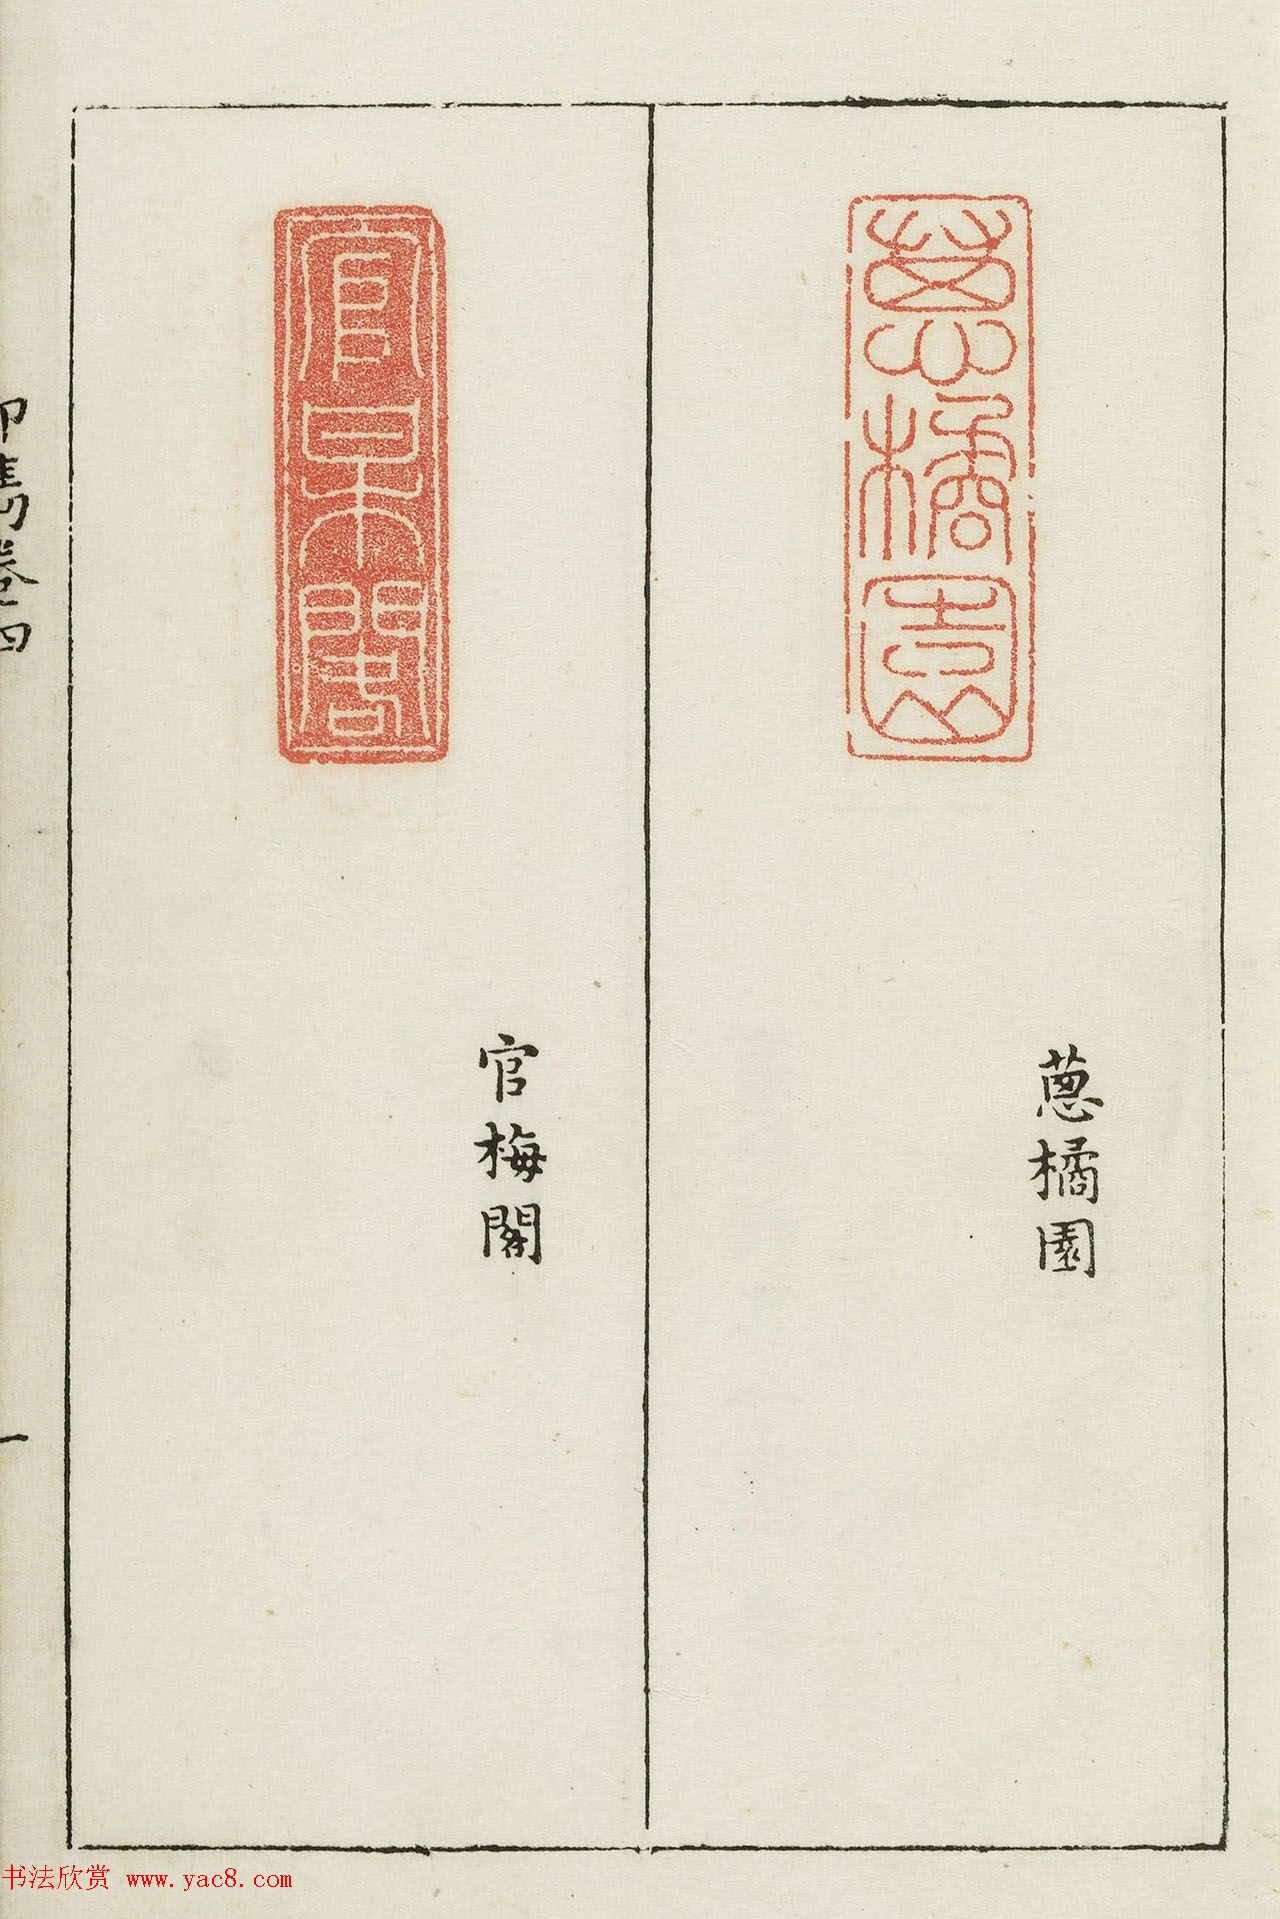 蔥橘園
蔥橘園
官某閣
官梅閣
印雋卷四
一
书法欣赏 www.yac8.com